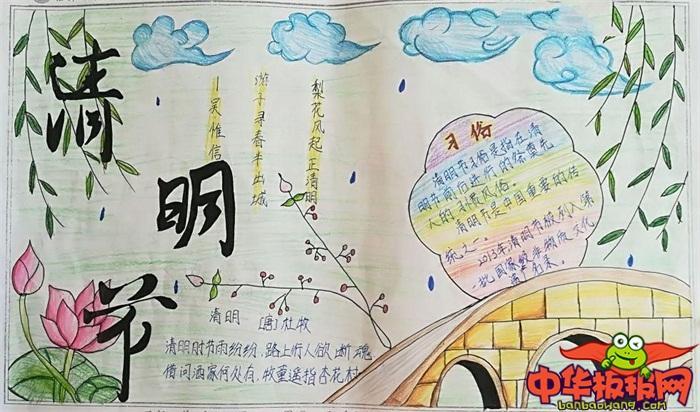 清
明
节
梨花风起正清明
游子寻春半出城
吴惟信
习俗
清明节习俗是指在清
明节前后进行的祭奠先
人的
风俗。
清明节是中国重要的传
统之一。
2013年清明节被列入第
一批国家级非物质文化
清明
[唐]杜牧
清明时节雨纷纷，路上行人欲断魂
借问酒家何处有，牧童遥指杏花村
中华板报网
banbaowang.com